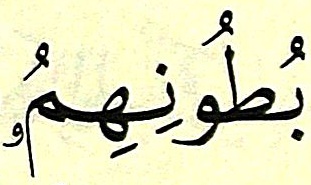 بُطُونِهِمُۥ